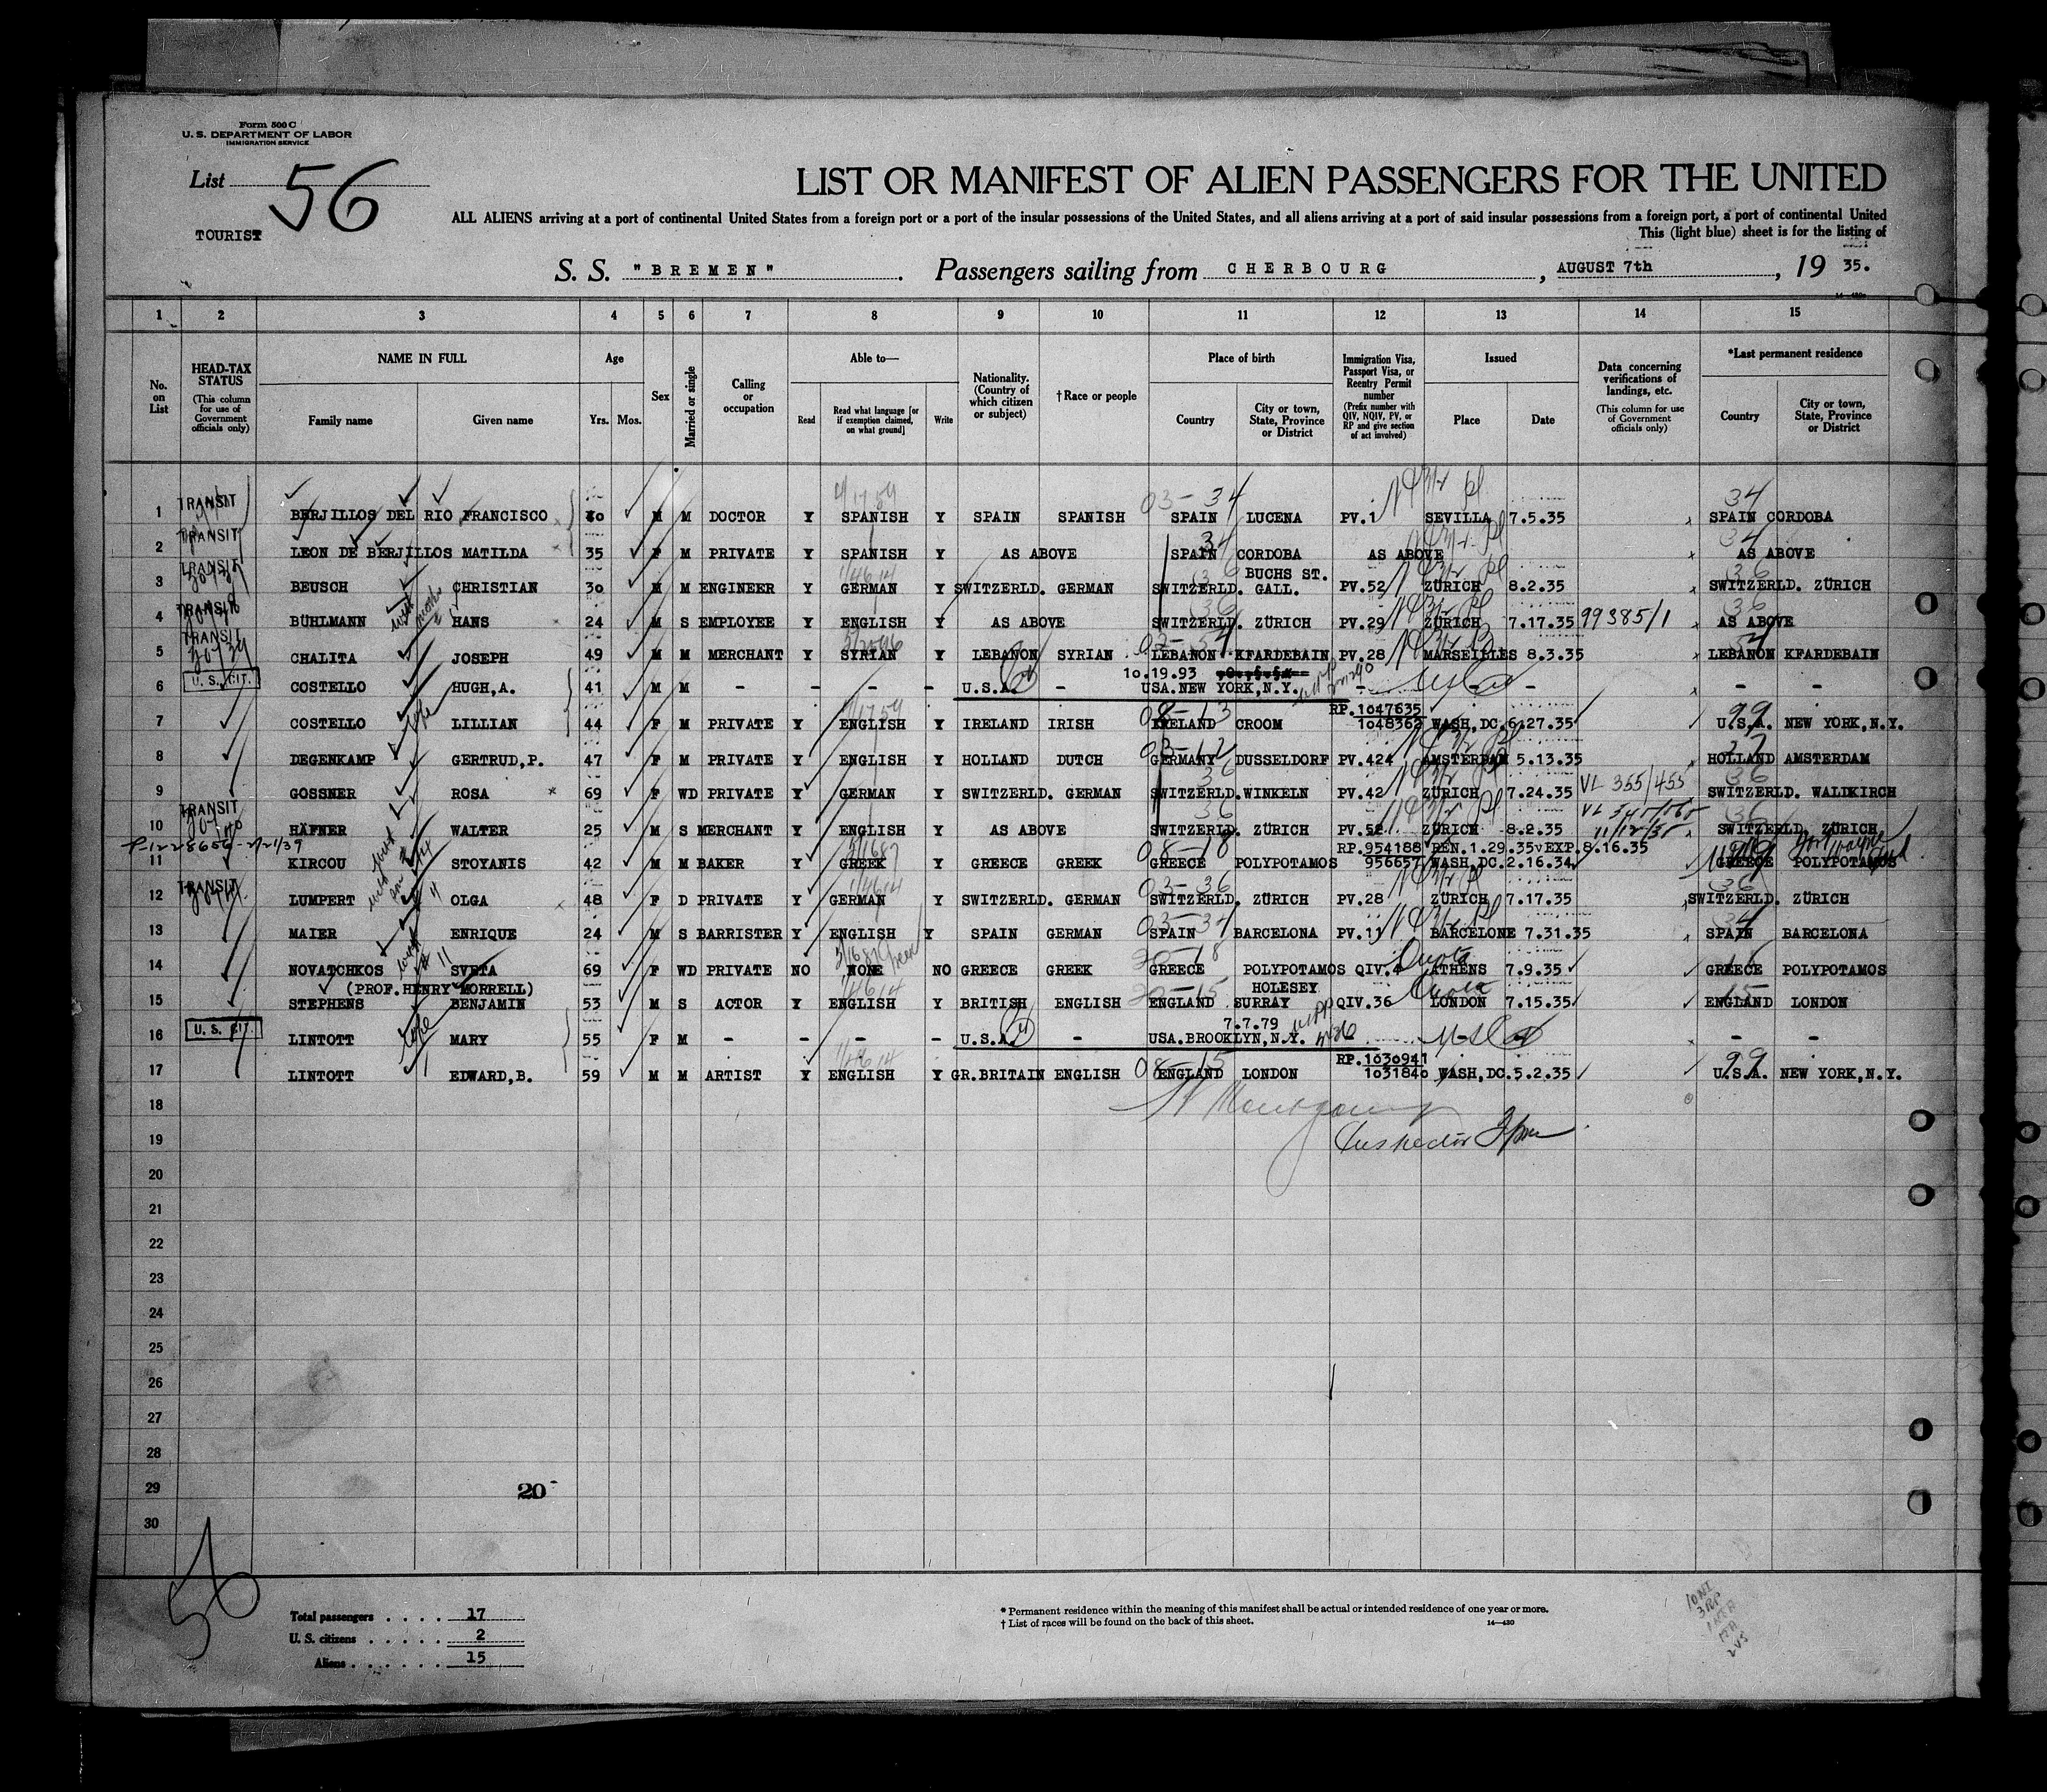 Form 500 C
U. S. DEPARTMENT OF LABOR
IMMIGRATION SERVICE
List 56
TOURIST
LIST OR MANIFEST OF ALIEN PASSENGERS FOR THE UNITED
ALL ALIENS arriving at a port of continental United States from a foreign port or a port of the insular possessions of the United States, and all aliens arriving at a port of said insular possessions from a foreign port, a port of continental United
This (light blue) sheet is for the listing of
S. S. "BREMEN". Passengers sailing from CHERBOURG, AUGUST 7th, 19 35.
14—430
1 2 3 4 5 6 7 8 9 10 11 12 13 14 15
No. on List
HEAD-TAX STATUS (This column for use of Government officials only)
NAME IN FULL
Family name Given name
Age
Yrs. Mos.
Sex
Married or single
Calling or occupation
Able to—
Read Read what language [or if exemption claimed, on what ground] Write
Nationality. (Country of which citizen or subject)
†Race or people
Place of birth
Country City or town, State, Province or District
Immigration Visa, Passport Visa, or Reentry Permit number (Prefix number with QIV, NQIV, PV, or RP and give section of act involved)
Issued
Place Date
Data concerning verifications of landings, etc. (This column for use of Government officials only)
*Last permanent residence
Country City or town, State, Province or District
1 TRANSIT BERJILLOS DEL RIO FRANCISCO 40 M M DOCTOR Y SPANISH Y SPAIN SPANISH SPAIN LUCENA PV.1 SEVILLA 7.5.35 SPAIN CORDOBA
2 TRANSIT LEON DE BERJILLOS MATILDA 35 F M PRIVATE Y SPANISH Y AS ABOVE SPAIN CORDOBA AS ABOVE AS ABOVE
3 TRANSIT BEUSCH CHRISTIAN 30 M M ENGINEER Y GERMAN Y SWITZERLD. GERMAN SWITZERLD. BUCHS ST. GALL. PV.52 ZÜRICH 8.2.35 SWITZERLD. ZÜRICH
4 TRANSIT BÜHLMANN HANS 24 M S EMPLOYEE Y ENGLISH Y AS ABOVE SWITZERLD. ZÜRICH PV.29 ZÜRICH 7.17.35 99385/1 AS ABOVE
5 TRANSIT CHALITA JOSEPH 49 M M MERCHANT Y SYRIAN Y LEBANON SYRIAN LEBANON KFARDEBAIN PV.28 MARSEILLES 8.3.35 LEBANON KFARDEBAIN
6 U. S. CIT. COSTELLO HUGH,A. 41 M M - - - - U.S.A. - 10.19.93 USA.NEW YORK,N.Y. - - - -
7 COSTELLO LILLIAN 44 F M PRIVATE Y ENGLISH Y IRELAND IRISH IRELAND CROOM RP.1047635 1048362 WASH,DC.6.27.35 U.S.A. NEW YORK,N.Y.
8 DEGENKAMP GERTRUD,P. 47 F M PRIVATE Y ENGLISH Y HOLLAND DUTCH GERMANY DUSSELDORF PV.424 AMSTERDAM 5.13.35 HOLLAND AMSTERDAM
9 GOSSNER ROSA 69 F WD PRIVATE Y GERMAN Y SWITZERLD. GERMAN SWITZERLD.WINKELN PV.42 ZÜRICH 7.24.35 VL 355/455 SWITZERLD. WALDKIRCH
10 TRANSIT HÄFNER WALTER 25 M S MERCHANT Y ENGLISH Y AS ABOVE SWITZERLD. ZÜRICH PV.52 ZÜRICH 8.2.35 11/12/35 SWITZERLD. ZÜRICH
11 KIRCOU STOYANIS 42 M M BAKER Y GREEK Y GREECE GREEK GREECE POLYPOTAMOS RP.954188 REN.1.29.35 EXP.8.16.35 956657 WASH,DC.2.16.34 GREECE POLYPOTAMOS
12 TRANSIT LUMPERT OLGA 48 F D PRIVATE Y GERMAN Y SWITZERLD. GERMAN SWITZERLD. ZÜRICH PV.28 ZÜRICH 7.17.35 SWITZERLD. ZÜRICH
13 MAIER ENRIQUE 24 M S BARRISTER Y ENGLISH Y SPAIN GERMAN SPAIN BARCELONA PV.11 BARCELONE 7.31.35 SPAIN BARCELONA
14 NOVATCHKOS SVETA 69 F WD PRIVATE NO NONE NO GREECE GREEK GREECE POLYPOTAMOS QIV.4 Quota ATHENS 7.9.35 GREECE POLYPOTAMOS
15 STEPHENS (PROF.HENRY MORRELL) BENJAMIN 53 M S ACTOR Y ENGLISH Y BRITISH ENGLISH ENGLAND HOLESEY SURRAY QIV.36 Quota LONDON 7.15.35 ENGLAND LONDON
16 U. S. CIT. LINTOTT MARY 55 F M - - - - U.S.A. - 7.7.79 USA.BROOKLYN,N.Y. - - - -
17 LINTOTT EDWARD,B. 59 M M ARTIST Y ENGLISH Y GR.BRITAIN ENGLISH ENGLAND LONDON RP.1030941 1031840 WASH,DC.5.2.35 U.S.A. NEW YORK,N.Y.
18
19
20
21
22
23
24
25
26
27
28
29 20
30
56
Total passengers . . . . 17
U. S. citizens . . . . . 2
Aliens . . . . . . 15
* Permanent residence within the meaning of this manifest shall be actual or intended residence of one year or more.
† List of races will be found on the back of this sheet.
14—430